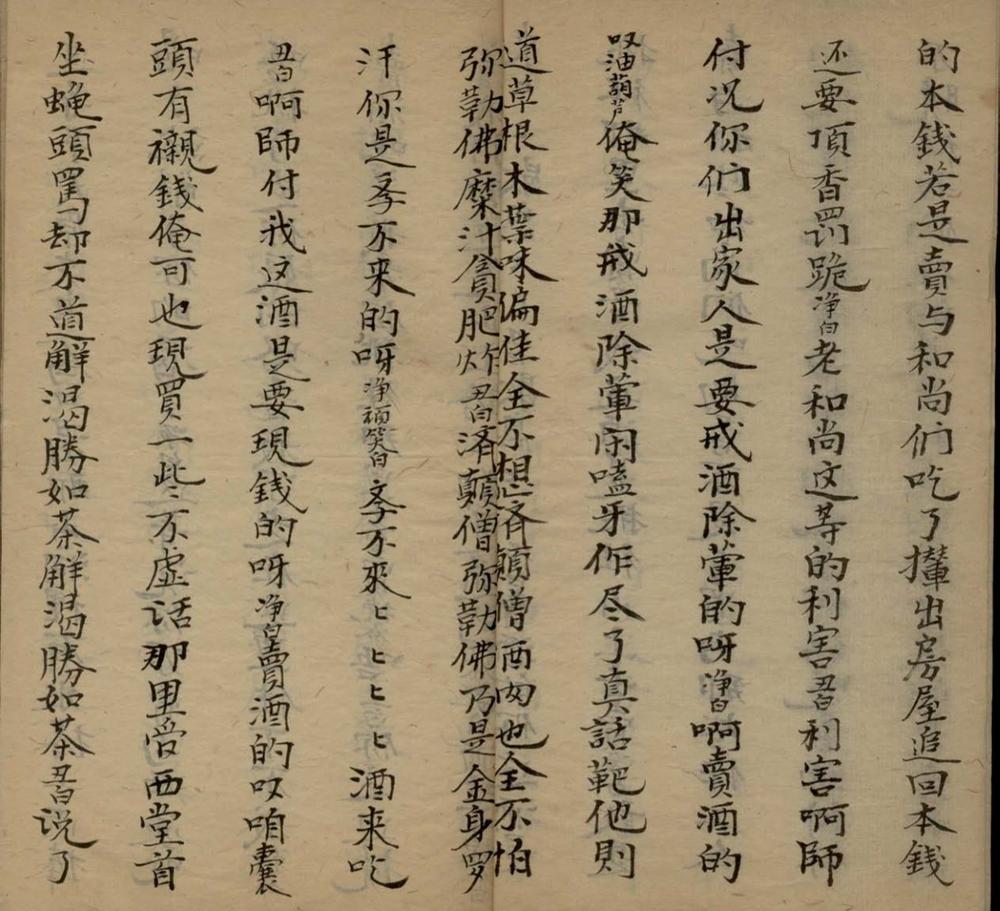 的本錢若是賣与和尚们吃了攆出房屋追回本錢
还要頂香罰跪净白老和尚这等的利害丑白利害啊師
付况你们出家人是要戒酒除葷的呀净白啊賣酒的
叹油葫芦俺笑那戒酒除葷闲嗑牙作尽了真話靶他則
道草根木葉味偏佳全不想济顛僧西匈也全不怕
弥勒佛糜汁貪肥炸丑白済顛僧弥勒佛乃是金身罗
汗你是孝不来的呀净稱笑白孝不來匕匕匕匕酒来吃
丑白啊師付我这酒是要現錢的呀净白賣酒的叹咱囊
頭有襯錢俺可也現買一些不虚话那里管西堂首
坐蝇頭罵却不道解渴勝如茶解渴勝如茶丑白说了